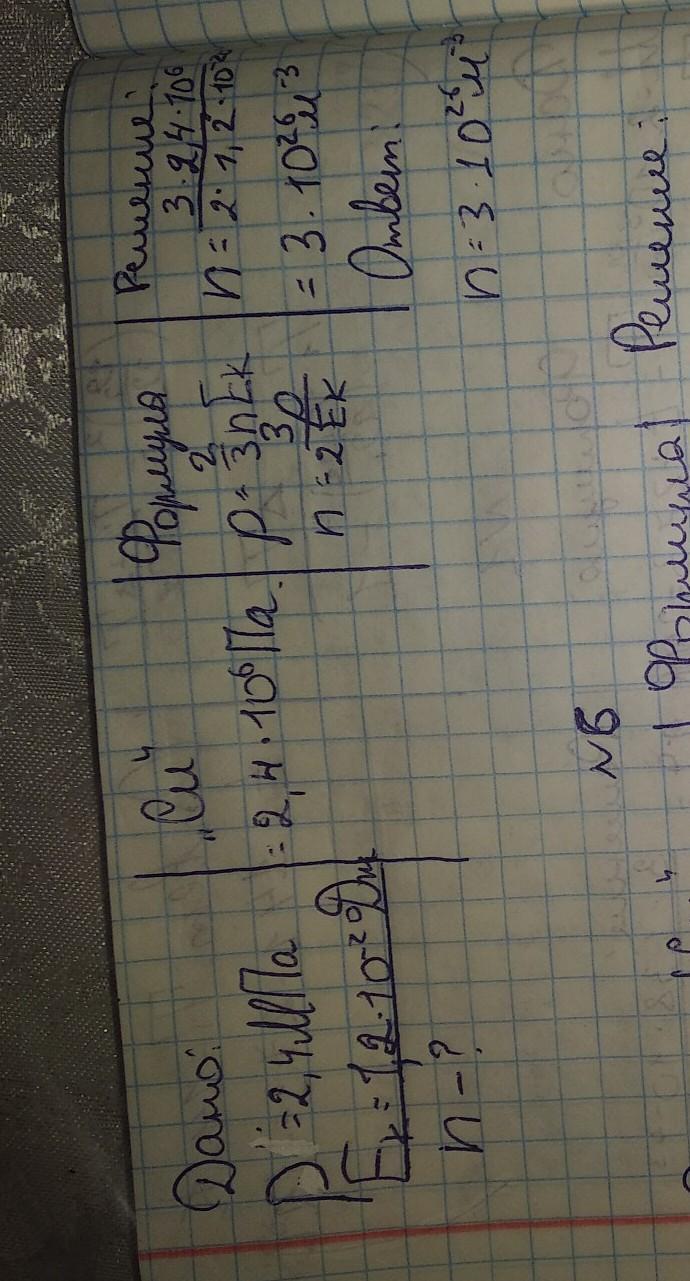 Дано:
P = 2,4 МПа
Eк = 1,2 · 10⁻²⁰ Дж
n - ?
"Си"
= 2,4 · 10⁶ Па.
Формула
p = 2/3 n Eк
n = 3p/2Eк
Решение:
n = 3 · 2,4 · 10⁶ / 2 · 1,2 · 10⁻²⁰
= 3 · 10²⁶ м⁻³
Ответ:
n = 3 · 10²⁶ м⁻³
№5
Формула
Решение: